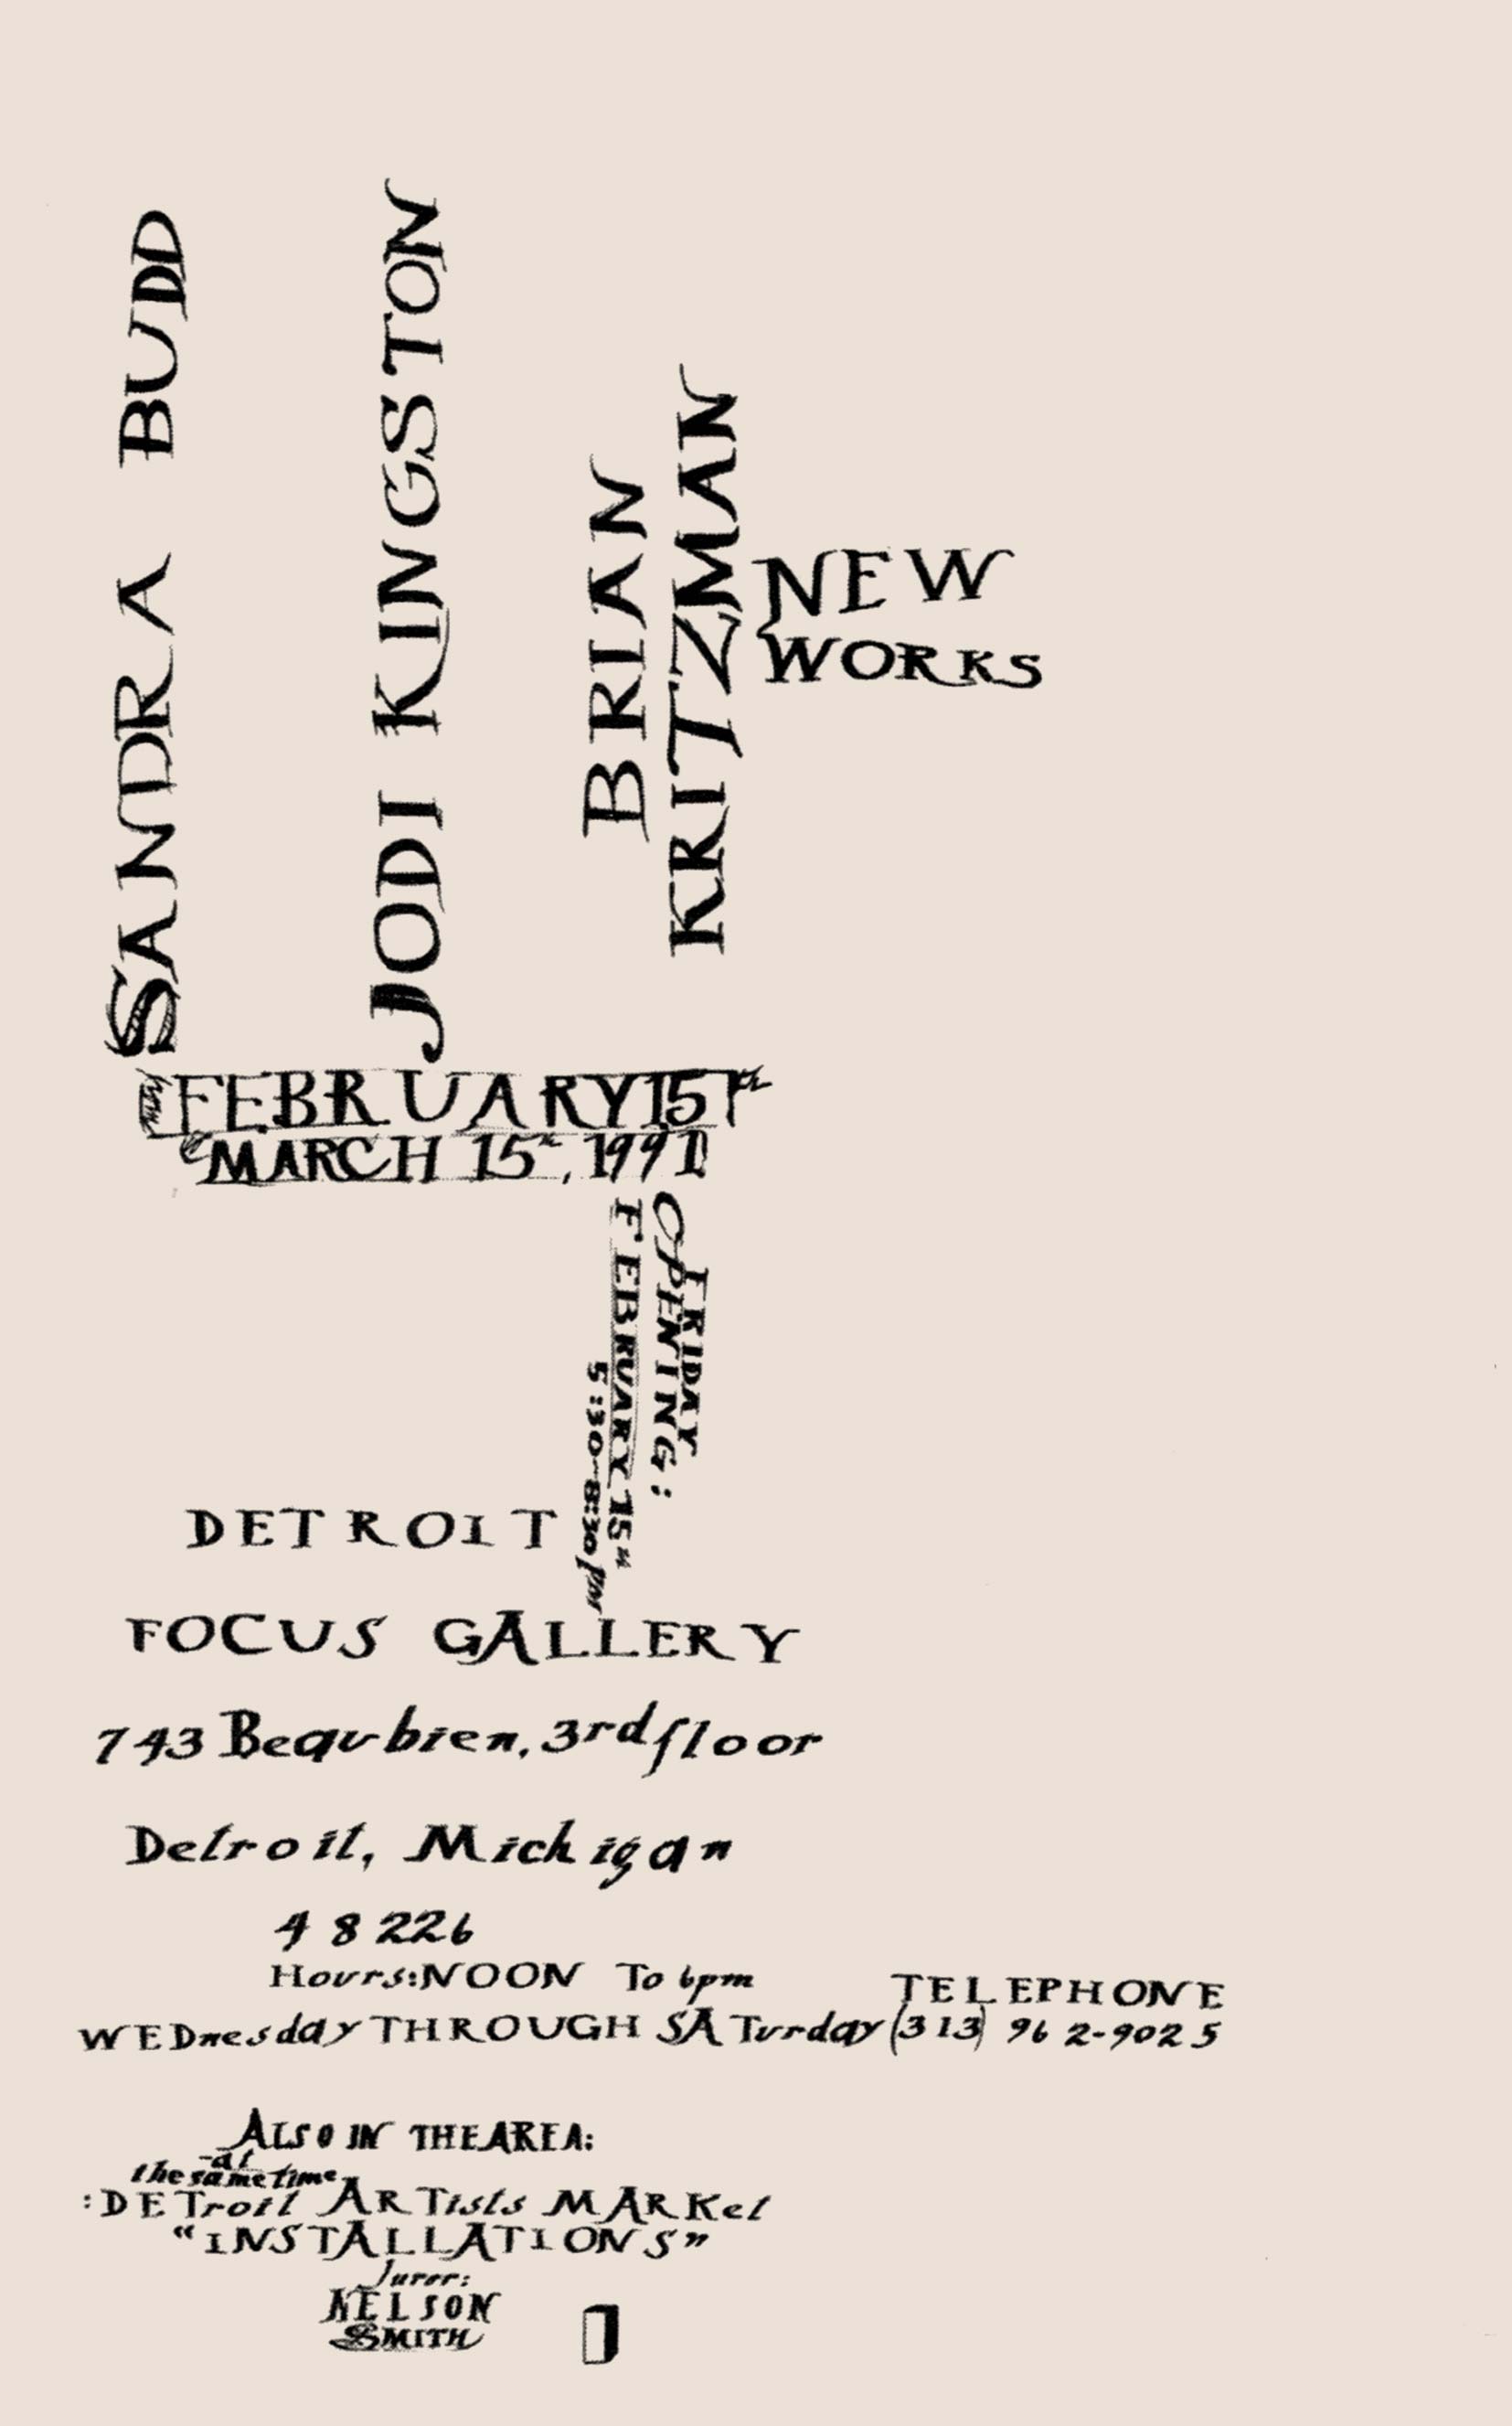 SANDRA BUDD
JODI KINGSTON
BRIAN
KRITZMAN
NEW
WORKS
FEBRUARY 15th
MARCH 15th, 1991
FRIDAY
OPENING:
FEBRUARY 15th
5:30-8:30pm
DETROIT
FOCUS GALLERY
743 Beaubien, 3rd floor
Detroit, Michigan
48226
Hours: NOON To 6pm
WEDnesday THROUGH SATurday
TELEPHONE
(313) 962-9025
ALSO IN THE AREA:
-at
the same time
:DETroit ARTists MARKet
"INSTALLATIONS"
Juror:
NELSON
SMITH